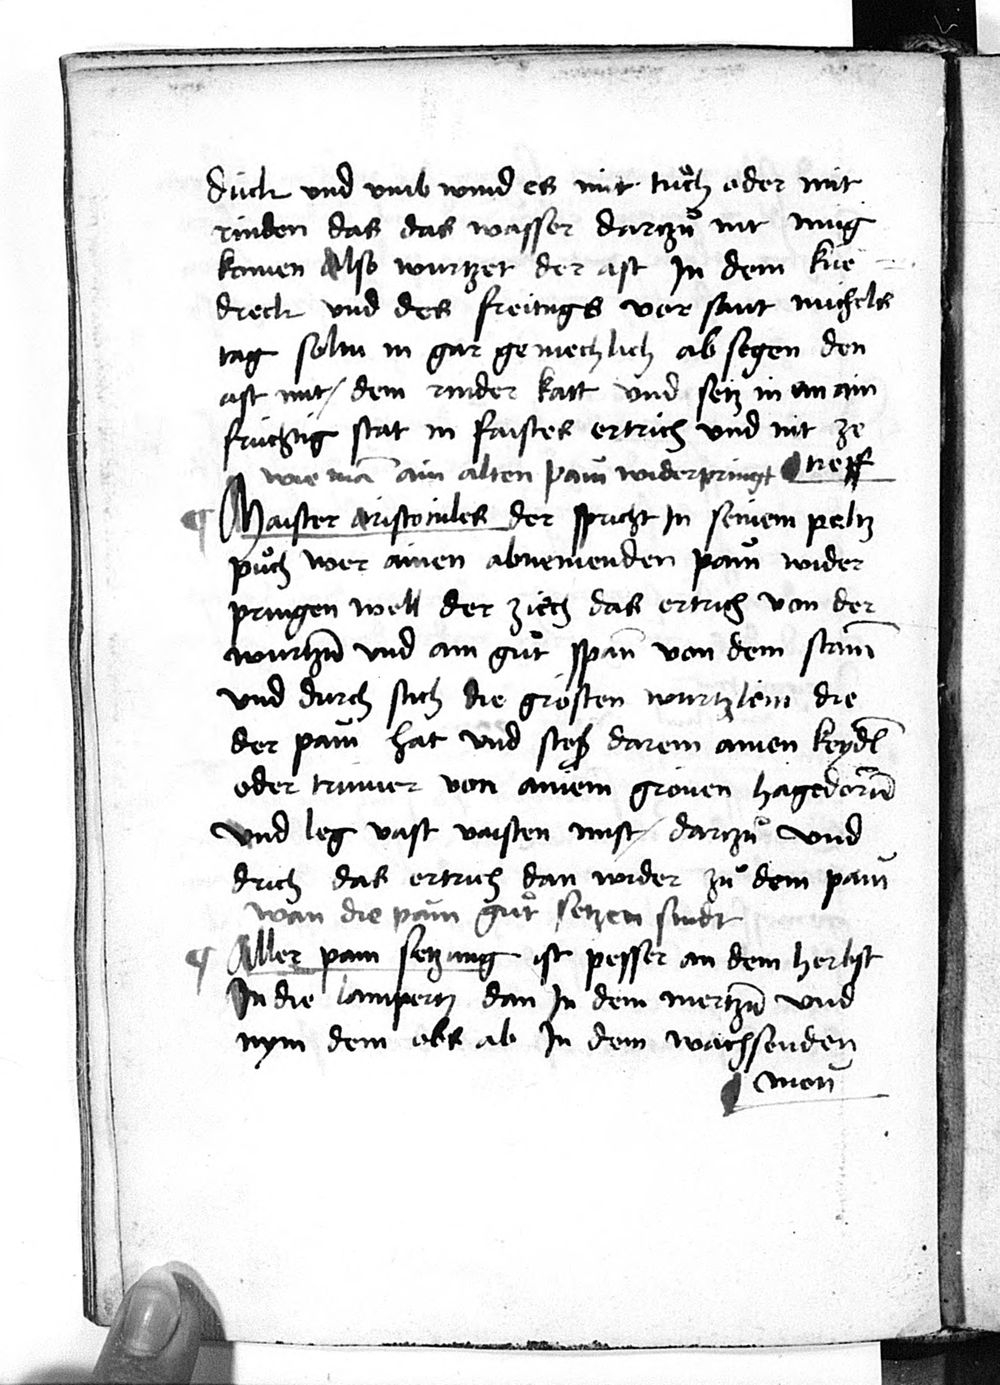 dück und umb wind es mit tuͦch oder mit
rinden das das wasser darczuͦ nit müg
komen Also wurtzet der ast In dem küe
dreck und des freitags vor sant michels
tag soltu in gar gemechlich ab segen den
ast mit dem rinder katt und setz in an ain
früchtig stat in faistes ertrich und nit ze
treff
wie mā ain alten paūm widerpringt
¶ Maister aristotiles der spricht In seinem peltz
puͦch wer ainen abnemenden paūm wider
pringen well der ziech das ertrich von der
wurtzn̄ und ain guͦt span̄ von dem stam̄
und durch stich die grösten würtzlein die
der paum hat und stoß darein ainen keydl
oder trümer von ainem grönen hagedorn̄
und leg vast vaisten mist darczuͦ und
drich das ertrich dan wider zuͦ dem paūm
wan die paum guͦt setzen sindt
¶ Aller paum setzung ist pesser an dem herbst
In die lamparty dan In dem mertzn̄ und
nym dem obs ab In dem wachsenden
mon̄